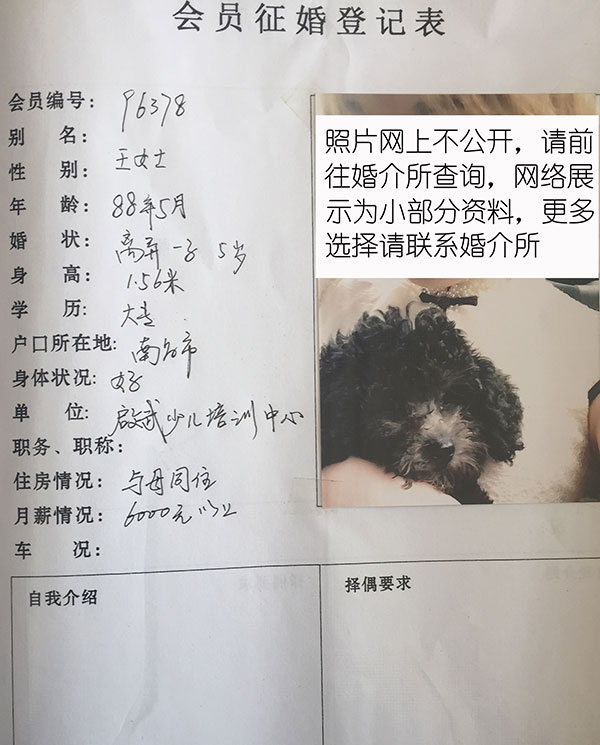 会员征婚登记表
会员编号: 96378
别 名: 王女士
性 别:
年 龄: 88年5月
婚 状: 离异 一子 5岁
身 高: 1.56米
学 历: 大专
户口所在地: 南昌市
身体状况: 好
单 位: 少儿培训中心
职务、职称:
住房情况: 与母同住
月薪情况: 6000元以上
车 况:
照片网上不公开，请前
往婚介所查询，网络展
示为小部分资料，更多
选择请联系婚介所
自我介绍
择偶要求